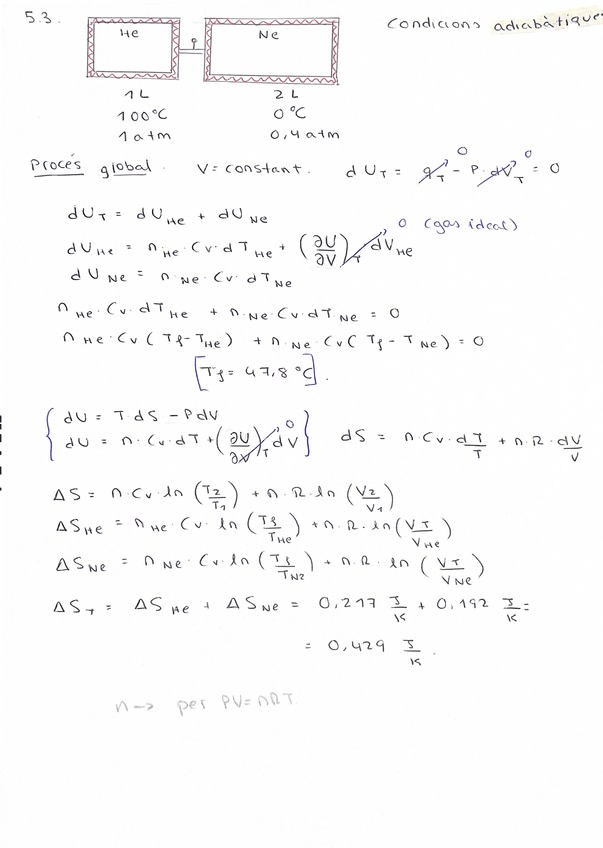 5.3.
He Ne condicions adiabàtiques
1 L 2 L
100°C 0°C
1 atm 0,4 atm
Procés global. V = constant. dU_T = q_T^0 - P·dV_T^0 = 0
dU_T = dU_He + dU_Ne
dU_He = n_He · Cv · dT_He + (∂U/∂V)_T dV_He 0 (gas ideal)
dU_Ne = n_Ne · Cv · dT_Ne
n_He · Cv · dT_He + n_Ne · Cv · dT_Ne = 0
n_He · Cv (Tf - T_He) + n_Ne · Cv (Tf - T_Ne) = 0
[Tf = 47,8 °C].
{ dU = T dS - P dV
dU = n · Cv · dT + (∂U/∂V)_T dV 0 } dS = n · Cv · dT/T + n · R · dV/V
ΔS = n · Cv · ln (T2/T1) + n · R · ln (V2/V1)
ΔS_He = n_He · Cv · ln (Tf/T_He) + n · R · ln (V_T/V_He)
ΔS_Ne = n_Ne · Cv · ln (Tf/T_N2) + n · R · ln (V_T/V_Ne)
ΔS_T = ΔS_He + ΔS_Ne = 0,217 J/K + 0,192 J/K =
= 0,429 J/K .
n → per PV = nRT